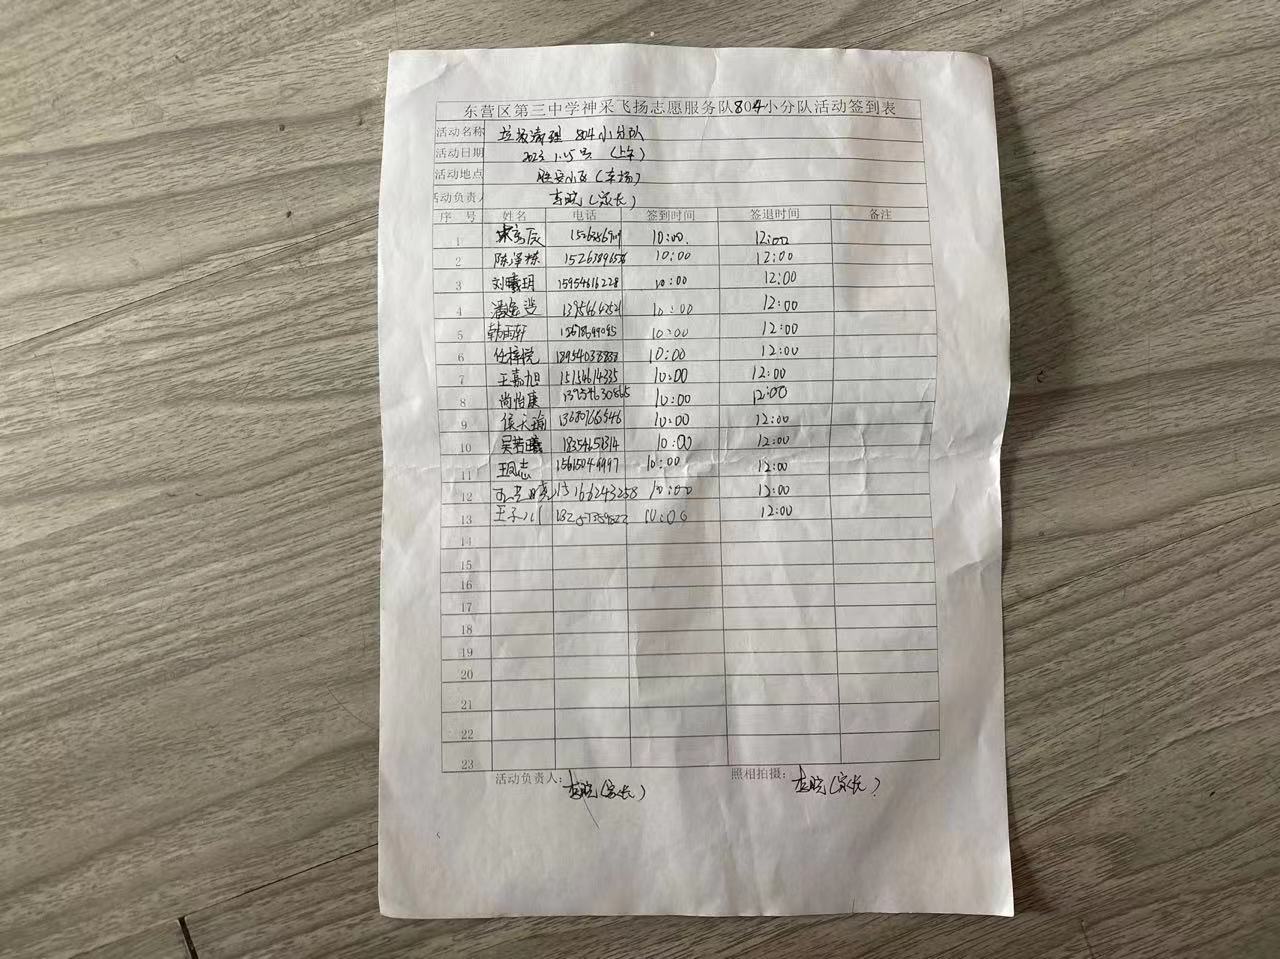 东营区第三中学神采飞扬志愿服务队804小分队活动签到表
活动名称 垃圾清理 804小分队
活动日期 2023 1.15号 (上午)
活动地点 小区(车场)
活动负责人 李晓(家长)
序号 姓名 电话 签到时间 签退时间 备注
1 10:00. 12:00
2 陈泽栋 10:00 12:00
3 刘曦玥 15954616228 10:00 12:00
4 10:00 12:00
5 韩雨轩 10:00 12:00
6 任梓悦 18954038888 10:00 12:00
7 王嘉旭 15154614335 10:00 12:00
8 尚怡康 13954630865 10:00 12:00
9 侯天瑜 10:00 12:00
10 吴若曦 18354651314 10:00 12:00
11 王同志 10:00 12:00
12 13166243258 10:00 12:00
13 王子川 10:00 12:00
14
15
16
17
18
19
20
21
22
23
活动负责人: 李晓(家长) 照相拍摄: 李晓(家长)